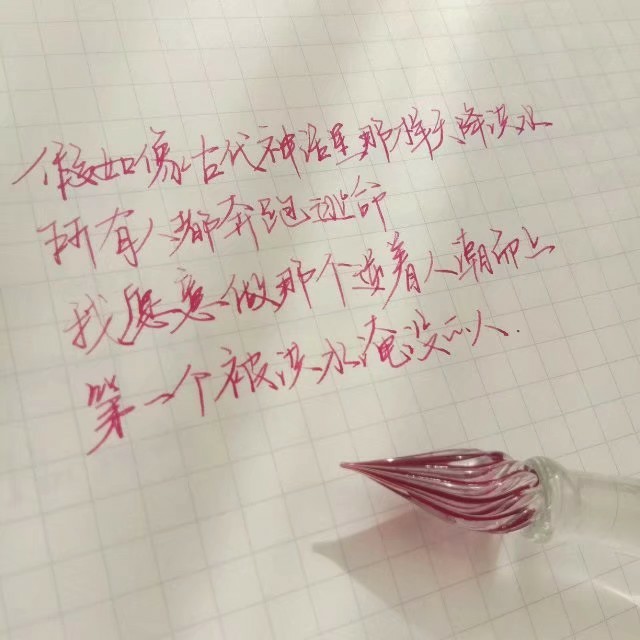 假如像古代神话里那样天降洪水
所有人都奔跑逃命
我愿意做那个逆着人潮而上
第一个被洪水淹没的人.